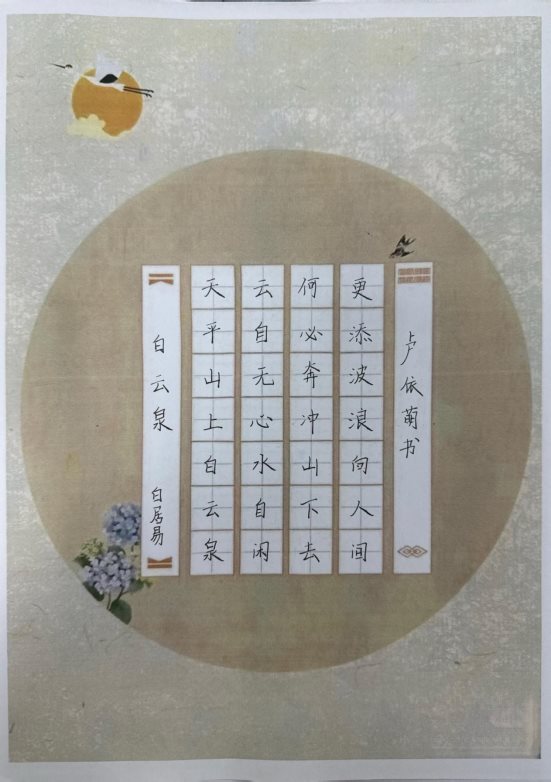 白云泉 白居易
天平山上白云泉
云自无心水自闲
何必奔冲山下去
更添波浪向人间
卢依萌书